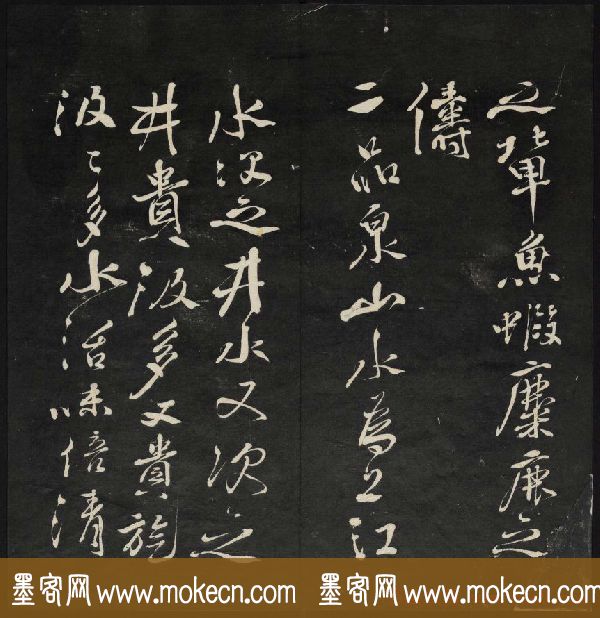 之輩魚蝦麋鹿之
儔
二品泉山水為上江
水次之井水又次之
井貴汲多又貴旋
汲〻多水活味倍清
墨客网 www.mokecn.com 墨客网 www.mokecn.com